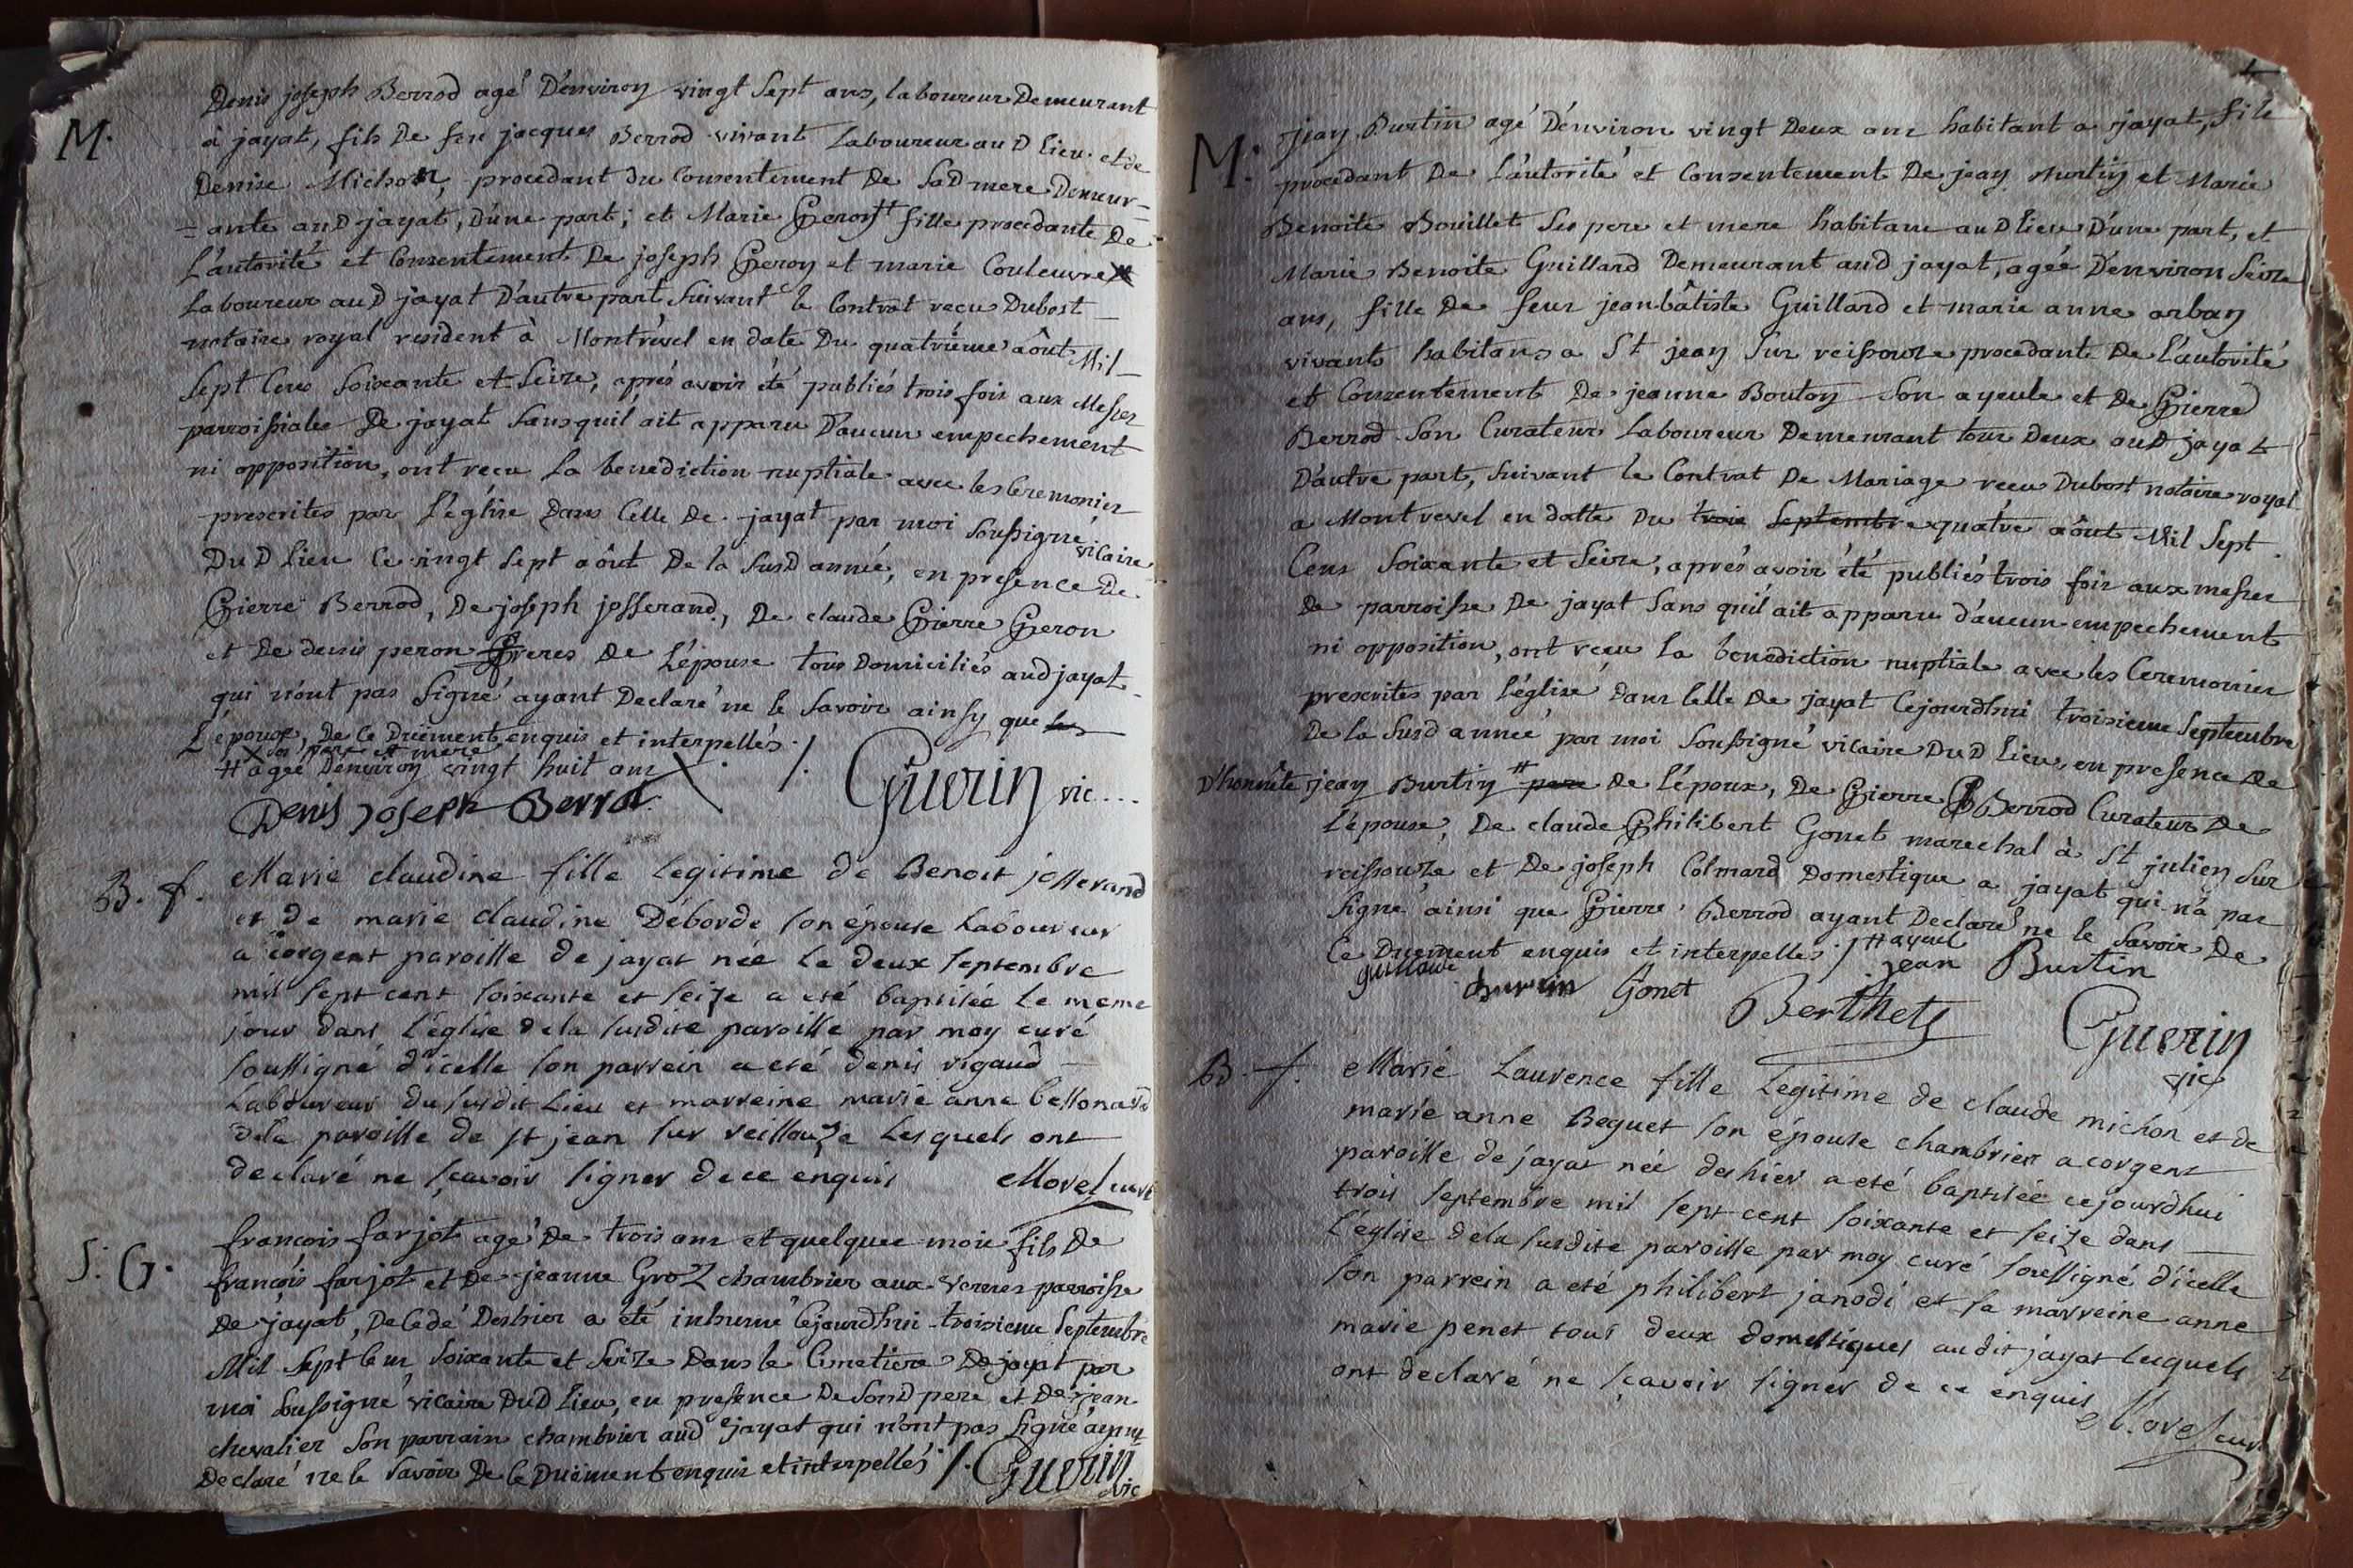 M.
Denis joseph Berrod agé D'environ vingt Sept ans, laboureur Demeurant
à jayat, fils De feu jacques Berrod vivant Laboureur auD lieu et de
Denise Michon, procedant du Consentement De SaD mere Demeur=
=ante auD jayat, D'une part; et Marie Peron # fille procedante De
L'autorité et Consentement De joseph Peron et marie Couleuvre X
Laboureur auD jayat D'autre part, Suivant le Contrat recu Dubost
notaire royal resident à Montrevel en date Du quatriéme aôut Mil
Sept Cens Soixante et Seize, aprés avoir été publiés trois fois aux Messes
parroissiales De jayat Sans quil ait apparu D'aucun empechement
ni opposition, ont recu la benediction nuptiale avec les Ceremonies
prescrites par l'église Dans Celle De jayat par moi Soussigné vicaire
DuD lieu Ce vingt Sept aôut De la SusD année, en presence De
Pierre Berrod, De joseph josserand, De claude Pierre Peron
et De denis peron freres De L'épouse tous Domiciliés auD jayat
qui n'ont pas Signé ayant Declaré ne le Savoir ainsy que les
L'épouse, De Ce Duëment enquis et interpellés ./.
X son pere et mere
# agée D'environ vingt huit ans
Guerin vic...
Denis Joseph Berrod
B. f.
Marie claudine fille legitime de Benoit josserand
et de marie claudine Déborde son épouse Laboureur
a Corgent paroisse de jayat née Le deux septembre
mil sept cent soixante et seize a eté baptisée Le meme
jour dans L'église de la susdite paroisse par moy curé
soussigné d'icelle son parrein a eté denis rigaud
Laboureur du susdit Lieu et marreine marie anne bellonard
de la paroisse de st jean sur reissouze Lesquels ont
declaré ne sçavoir signer de ce enquis Morel curé
S: G.
françois farjot agé De trois ans et quelques mois fils De
françois farjot et De jeanne Groz chambrier aux Vernes parroisse
De jayat, Decédé Deshier a été inhumé Cejourdhui troisieme Septembre
Mil Sept Cens Soixante et Seize Dans le Cimetiere De jayat par
moi Soussigné vicaire DuD lieu, en presence De SonD pere et De jean
chevalier Son parrain chambrier auD jayat qui n'ont pas Signé ayant
Declaré ne le Savoir De Ce Duëment enquis et interpellés ./. Guerin vic
M.
jean Burtin agé D'environ vingt Deux ans habitant a jayat, fils
procedant De L'autorité et Consentement De jean Burtin et Marie
Benoite Bouillet Ses pere et mere habitans auD lieu D'une part, et
Marie Benoite Guillard Demeurant auD jayat, agée D'environ Seize
ans, fille De feus jean-bâtiste Guillard et marie anne arban
vivants habitans a St jean Sur reissouze procedante De L'autorité
et Consentement De jeanne Bouton Son ayeule et De Pierre
Berrod Son Curateur Laboureur Demeurant tous Deux auD jayat
D'autre part, Suivant le Contrat De Mariage recu Dubost notaire royal
a Montrevel en datte Du trois Septembre quatre aôut Mil Sept
Cens Soixante et Seize, aprés avoir été publiés trois fois aux messes
De parroisse De jayat Sans qu'il ait apparu d'aucun empechement
ni opposition, ont recu la benediction nuptiale avec les Ceremonies
prescrites par l'église Dans Celle De jayat Cejourdhui troisieme Septembre
De la SusD année par moi Soussigné vicaire DuD lieu, en presence De
D'honnête jean Burtin # pere de l'époux, De Pierre Berrod Curateur De
l'épouse, De claude Philibert Gonet marechal à St julien Sur
reissouze et De joseph Colmard Domestique a jayat qui n'a pas
Signé ainsi que Pierre Berrod ayant Declaré ne le Savoir De
Ce Duëment enquis et interpellés ./. # ayeul
jean Burtin
Gonet
Berthet
Guerin
vic
B. f.
Marie Laurence fille Legitime de claude michon et de
marie anne Beguet son épouse chambrier a corgent
paroisse de jayat née des hier a eté baptisée cejourdhui
trois septembre mil sept cent soixante et seize dans
L'église de la susdite paroisse par moy curé soussigné d'icelle
son parrein a eté philibert janodi et sa marreine anne
marie penet tous deux domestiques au dit jayat Lesquels
ont declaré ne sçavoir signer de ce enquis
Morel curé